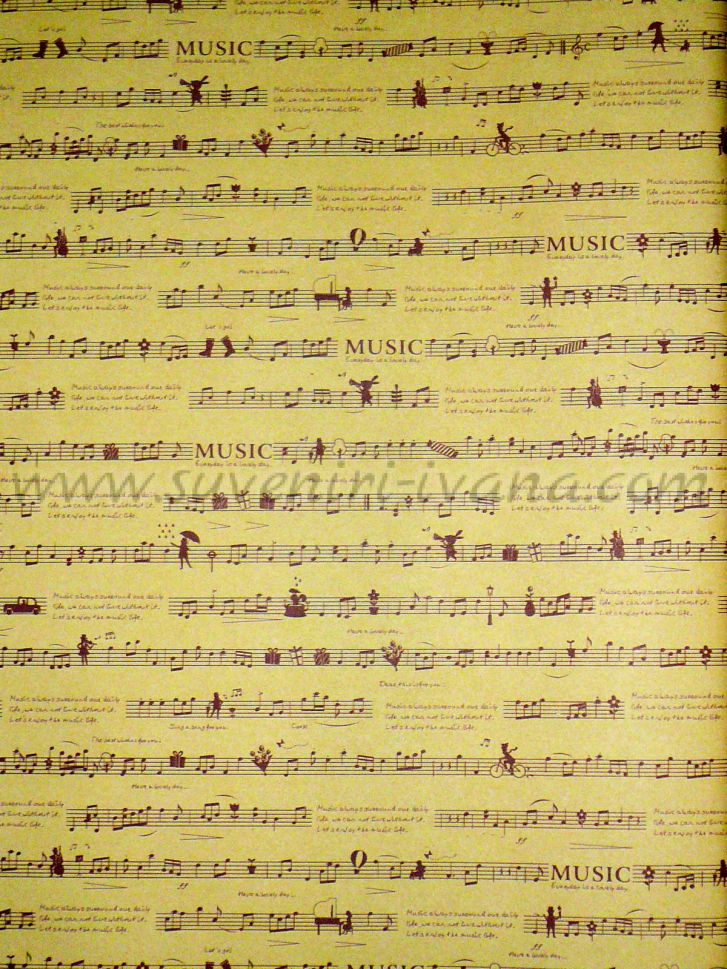 Have a lovely day...
Let's enjoy the music life.
Let's go!
MUSIC
Everyday is a lovely day.
Music always surround our daily
life, we can not live without it.
Let's enjoy the music life.
Music always surround our daily
life, we can not live without it.
Let's enjoy the music life.
The best wishes for you.
Have a lovely day...
Music always surround our daily
life, we can not live without it.
Let's enjoy the music life.
Music always surround our daily
life, we can not live without it.
Let's enjoy the music life.
MUSIC
Everyday is a lovely day.
Have a lovely day...
Music always surround our daily
life, we can not live without it.
Let's enjoy the music life.
Music always surround our daily
life, we can not live without it.
Let's enjoy the music life.
Let's go!
Have a lovely day...
MUSIC
Everyday is a lovely day.
Music always surround our daily
life, we can not live without it.
Let's enjoy the music life.
Music always surround our daily
life, we can not live without it.
Let's enjoy the music life.
The best wishes for you.
MUSIC
Everyday is a lovely day.
www.suveniri-ivana.com
Music always surround our daily
life, we can not live without it.
Let's enjoy the music life.
Music always surround our daily
life, we can not live without it.
Let's enjoy the music life.
Music always surround our daily
life, we can not live without it.
Let's enjoy the music life.
Music always surround our daily
life, we can not live without it.
Let's enjoy the music life.
Have a lovely day...
Dear, this is for you...
Music always surround our daily
life, we can not live without it.
Let's enjoy the music life.
Music always surround our daily
life, we can not live without it.
Let's enjoy the music life.
Sing a song for you.
The best wishes for you.
Have a lovely day...
Music always surround our daily
life, we can not live without it.
Let's enjoy the music life.
MUSIC
Everyday is a lovely day.
Have a lovely day...
Music always surround our daily
life, we can not live without it.
Let's enjoy the music life.
Music always surround our daily
life, we can not live without it.
Let's enjoy the music life.
Let's go!
Have a lovely day...
MUSIC